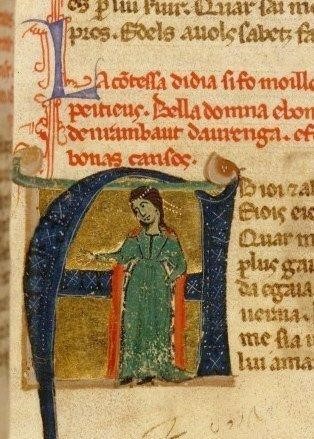 es p lui fuir. Quar sai me
pros. Edels avols sabetz fa
La cōtessa didia si fo moille
peitieus. Bella domna ebon
den rambaut daurenga. ef
bonas cansos.
AB ioi z ab
Eiois ei
Quar m
plus gai
da egaia
veraia.
me sia v
lui ama